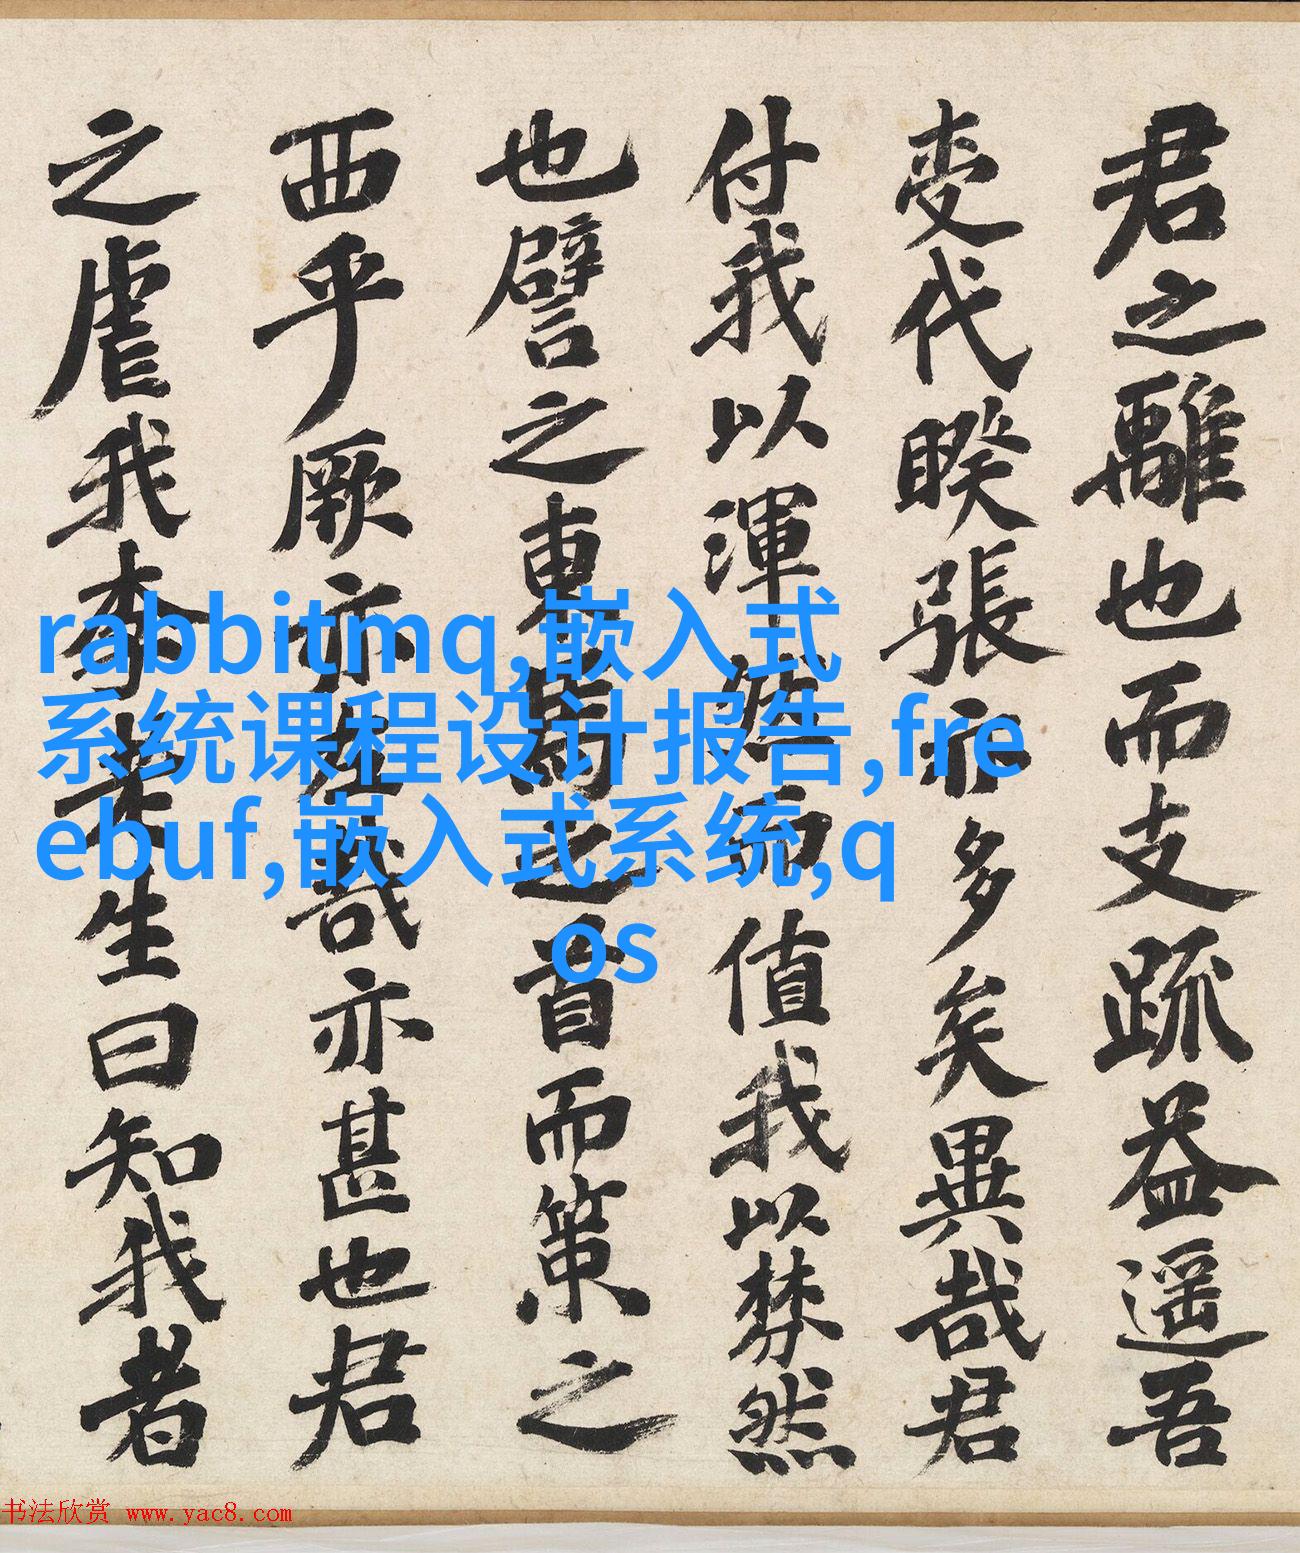 君之離也而支疏益遥吾
代睽張亦多矣異哉君
付我以渾然而值我以棼然
也譬之東馬之首而策之
西乎厥亦左哉亦甚也君
之虐我李老生曰知我者
rabbitmq,嵌入式
系统课程设计报告,fre
ebuf,嵌入式系统,q
os
书法欣赏 www.yac8.com